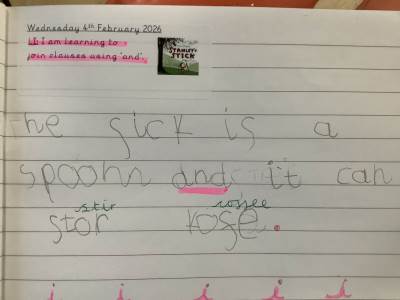 Wednesday 4th February 2026
LI: I am learning to
join clauses using 'and'.
STANLEY'S STICK
he sick is a
spoohn and it can
stir coffee
stor kofe.
i i i i i